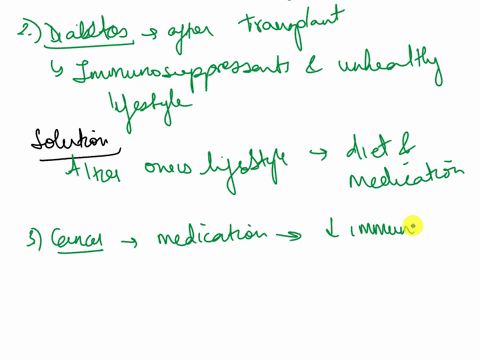 2.) Diabetes → after transplant
↳ Immunosuppressants & unhealthy
lifestyle
Solution
Alter ones lifestyle → diet &
medication
3) Cancer → medication → ↓ immun